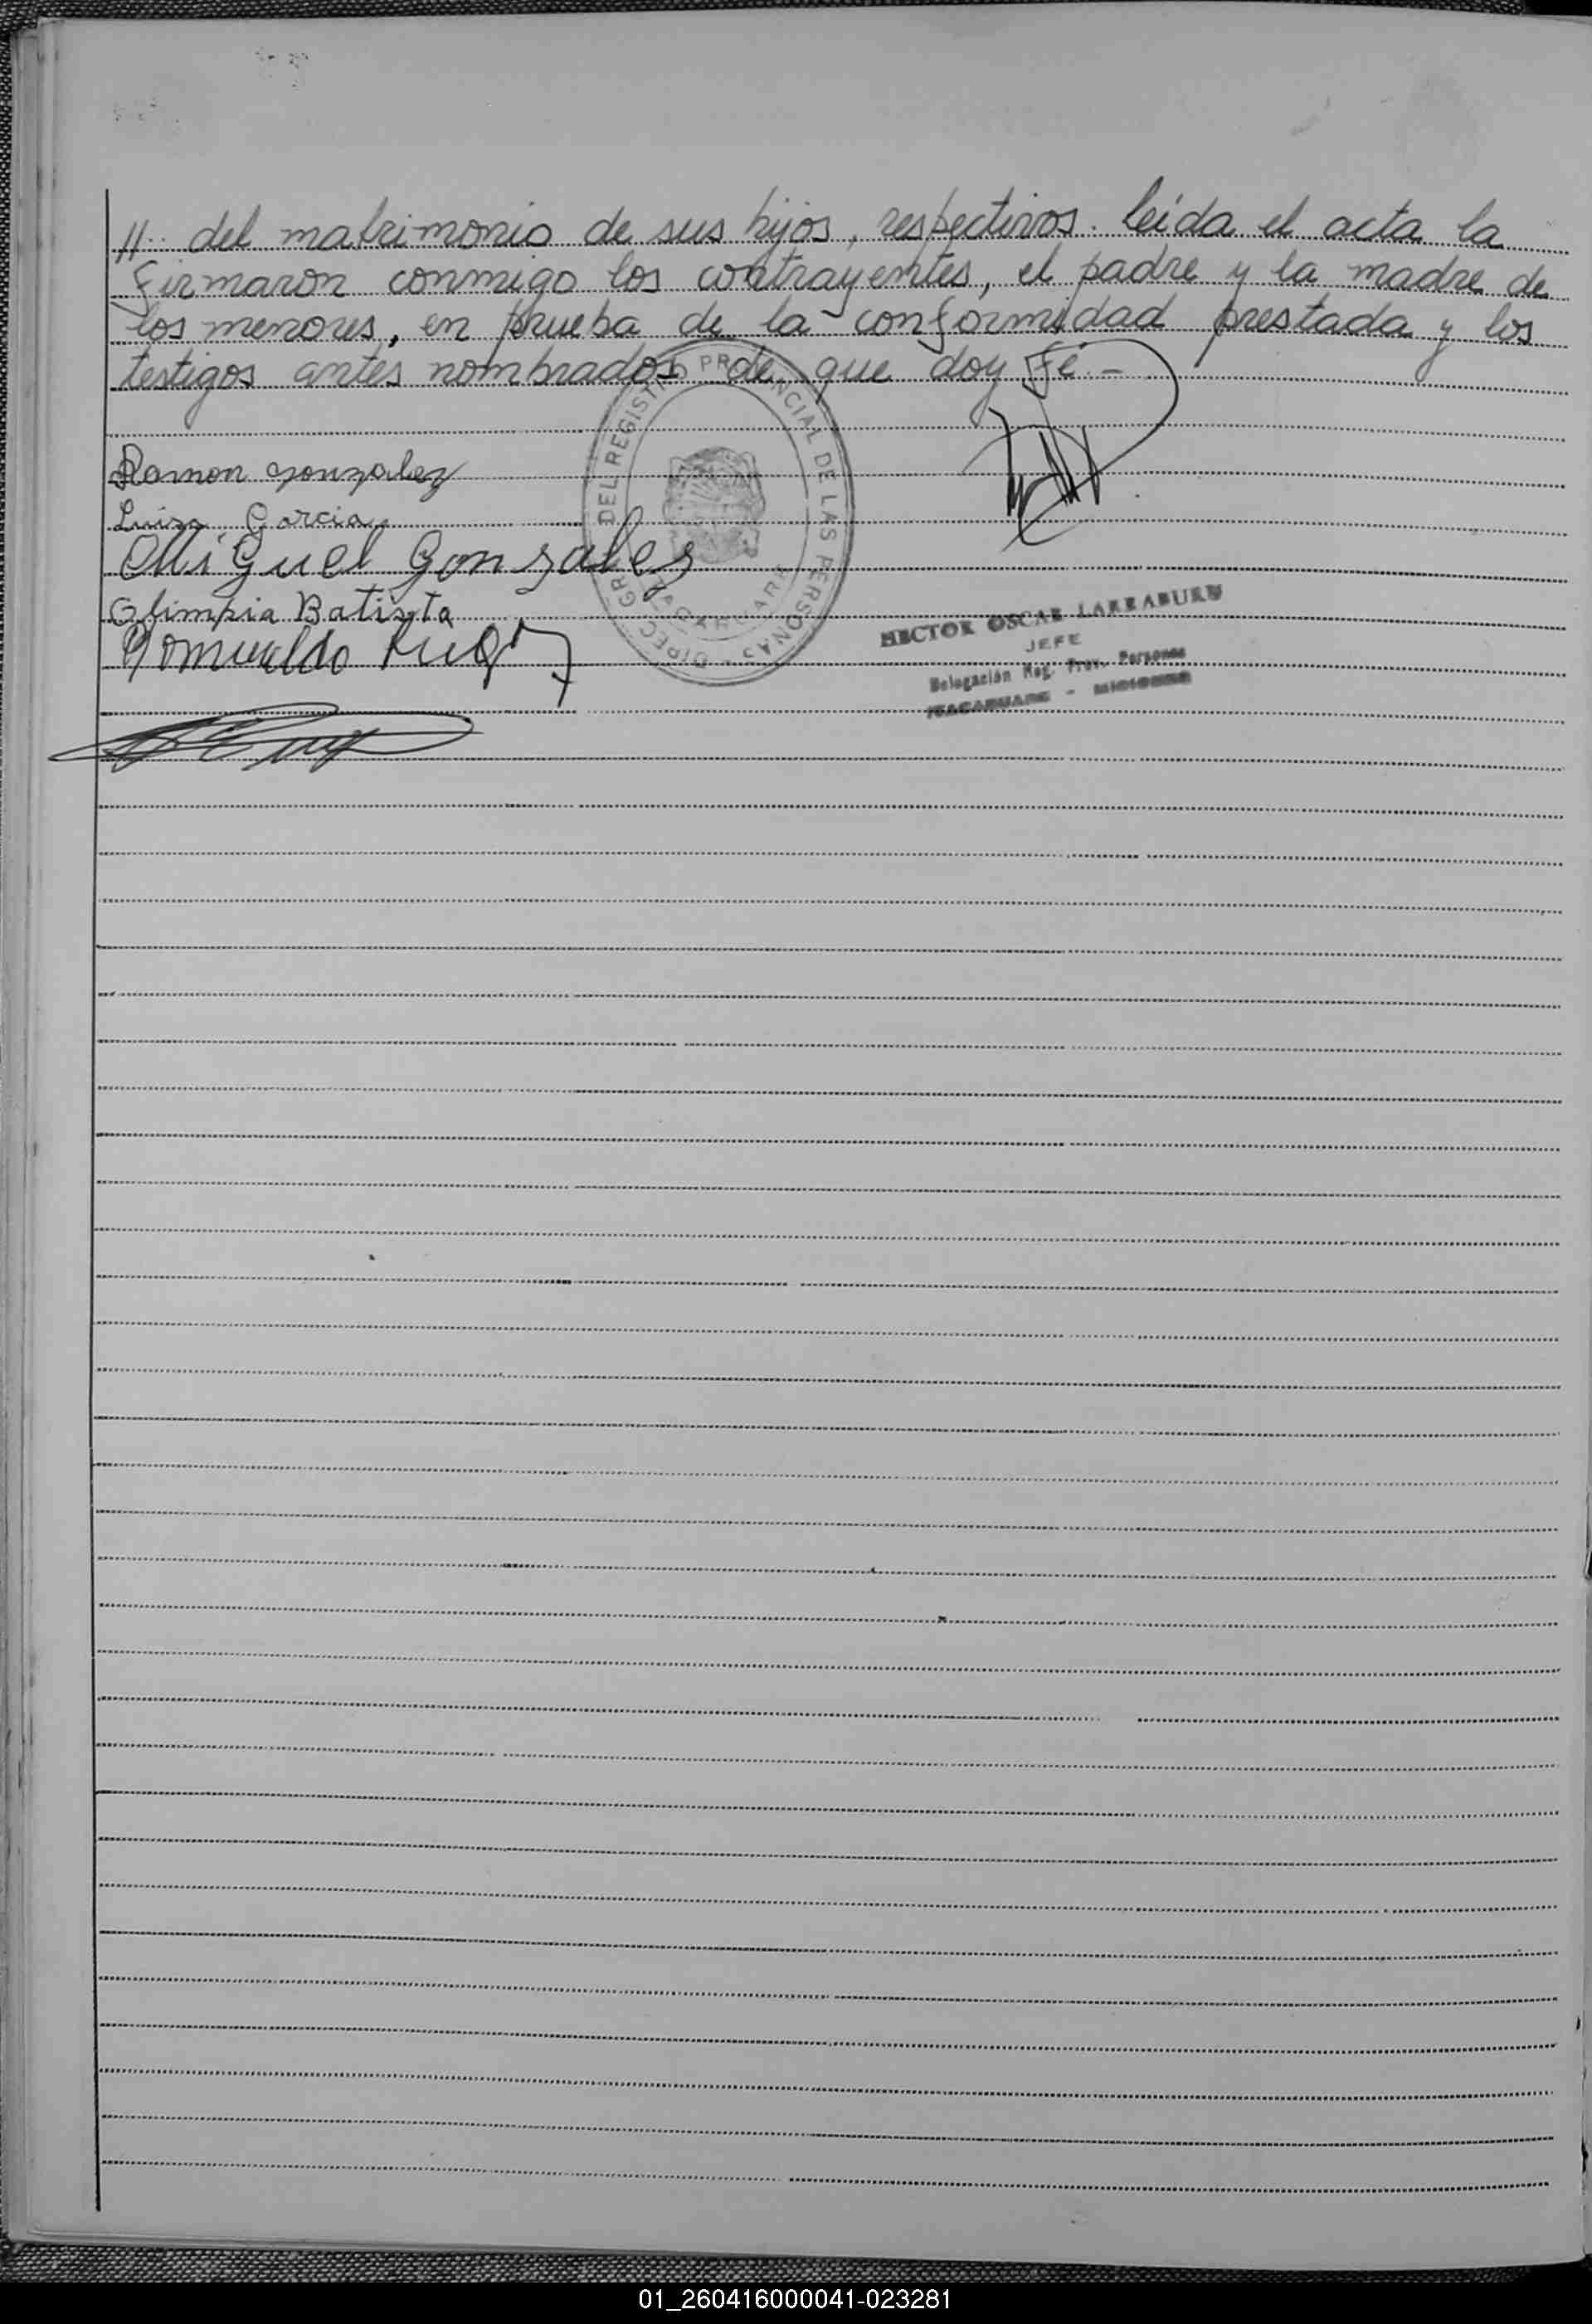 //.. del matrimonio de sus hijos, respectivos. leída el acta la
firmaron conmigo los contrayentes, el padre y la madre de
los menores, en prueba de la conformidad prestada y los
testigos antes nombrados de que doy Fé -
Ramon Gonzalez
Luisa Garcia
Miguel Gonzales
Olimpia Batista
Romualdo
DIREC. GRAL. DEL REGISTRO PROVINCIAL DE LAS PERSONAS
ITACARUARE
HECTOR OSCAR LARRABURU
JEFE
Delegación Reg. Prov. Personas
ITACARUARE - MISIONES
01_260416000041-023281